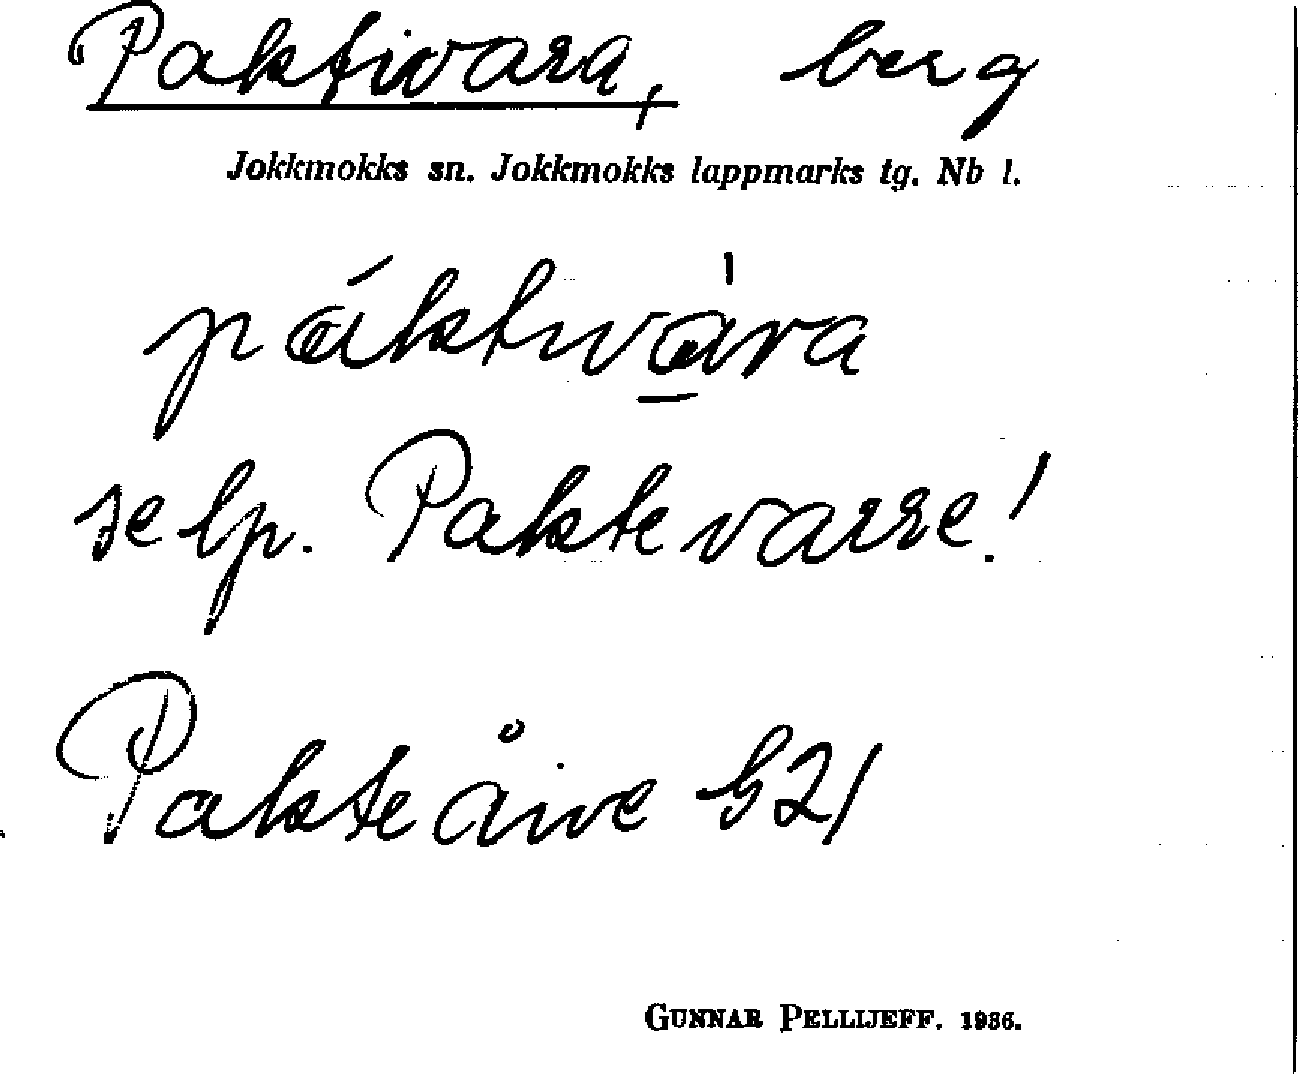 Paktivara, berg
Jokkmokks sn. Jokkmokks lappmarks tg. Nb l.
páktivàra
se lp. Paktevarre!
Pakteåive G21
GUNNAR PELLIJEFF. 1936.